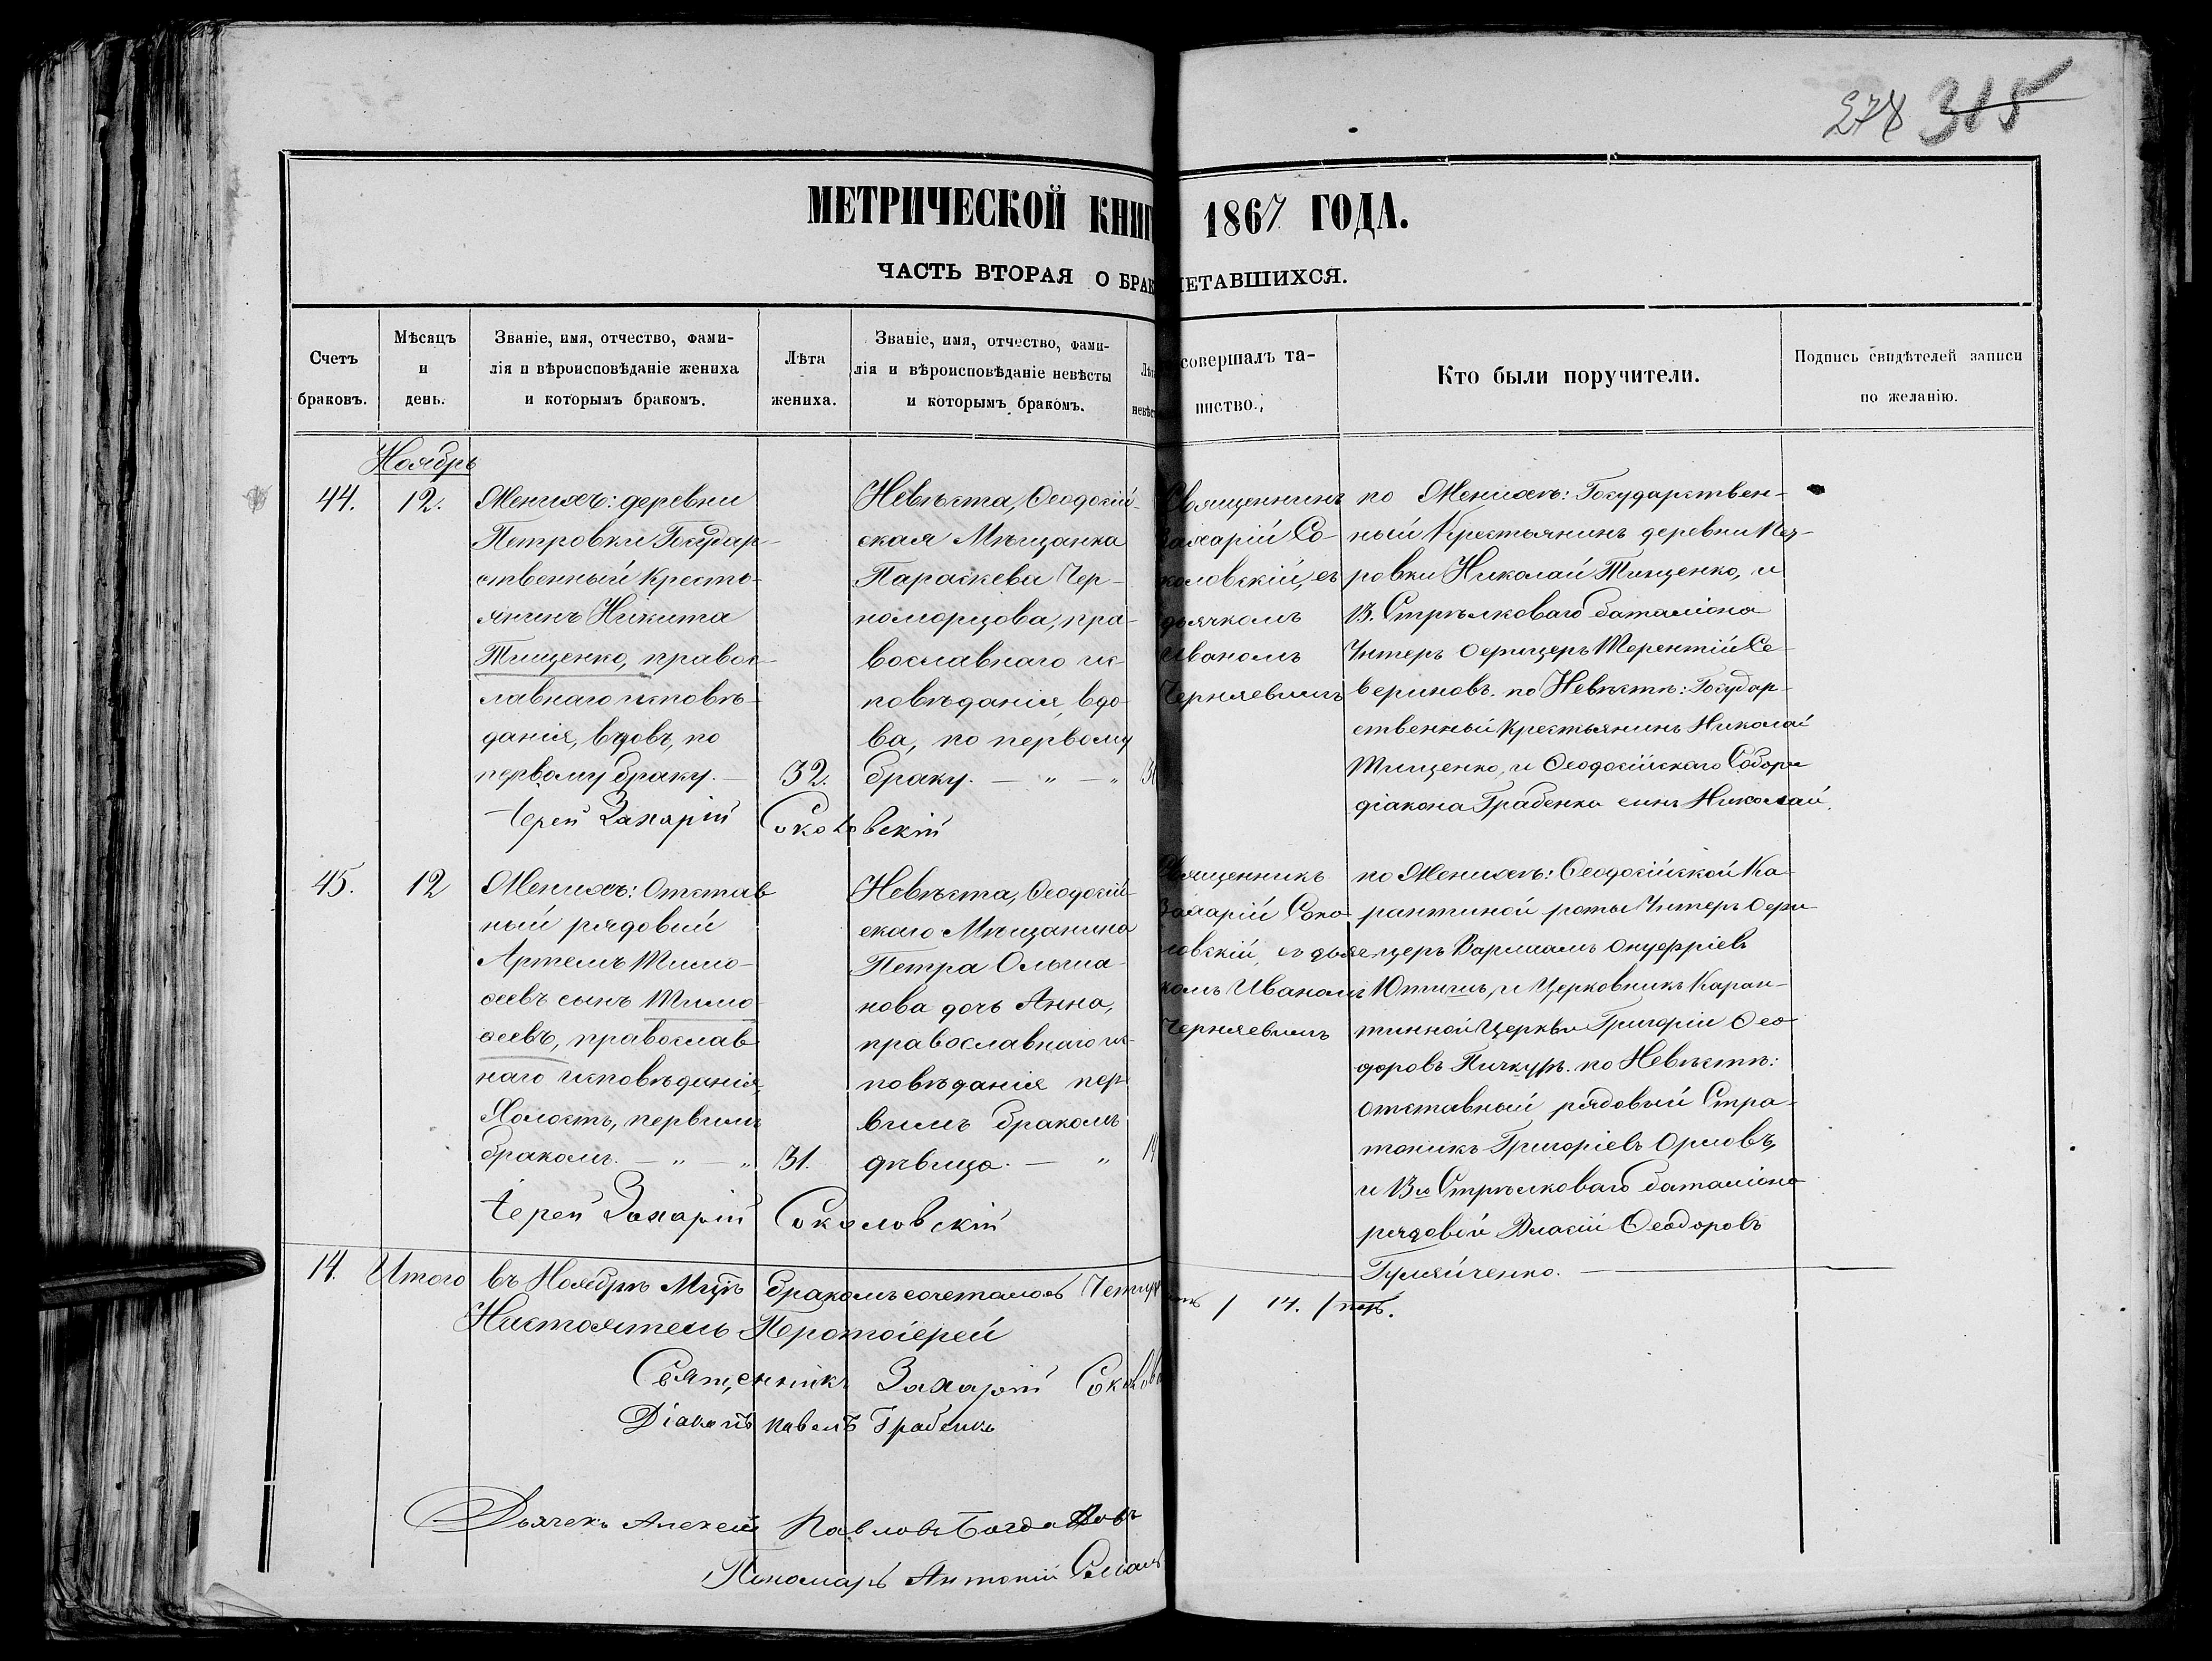 278 315
МЕТРИЧЕСКОЙ КНИГ 1867 ГОДА.
ЧАСТЬ ВТОРАЯ О БРАК ЧЕТАВШИХСЯ.
Счетъ браковъ.
Мѣсяцъ и день.
Званіе, имя, отчество, фами-
лія и вѣроисповѣданіе жениха
и которымъ бракомъ.
Лѣта
жениха.
Званіе, имя, отчество, фами-
лія и вѣроисповѣданіе невѣсты
и которымъ бракомъ.
Лѣт
невѣс
совершалъ та-
инство.
Кто были поручители.
Подпись свидѣтелей записи
по желанію.
Ноябрь
44.
12.
Женихъ: деревни
Петровки Государ-
ственный Кресть-
янинъ Никита
Тищенко, правос-
лавнаго исповѣ-
данія, вдовъ, по
первому браку. —
32.
Невѣста, Ѳеодосій-
ская Мѣщанка
Параскева Чер-
номорцова, пра-
вославнаго ис-
повѣданія, вдо-
ва, по первому
браку. — " — "
Священникъ
Захарій Со-
коловскій, съ
дьячкомъ
Иваномъ
Черняевымъ
по Женихѣ: Государствен-
ный Крестьянинъ деревни Пет-
ровки Николай Тищенко, и
13. Стрѣлковаго баталіона
Унтеръ Офицеръ Терентій Се-
вериновъ. по Невѣстѣ: Государ-
ственный Крестьянинъ Николай
Тищенко, и Ѳеодосійскаго Собора
діакона Грабенка сынъ Николай.
Іерей Захарій Соколовскій
45.
12
Женихъ: Отстав
ный рядовый
Артемъ Тимо-
ѳеевъ сынъ Тимо-
ѳеевъ, православ-
наго исповѣданія,
Холостъ, первымъ
бракомъ. — " — "
31.
Невѣста, Ѳеодосій-
скаго Мѣщанина
Петра Ольша-
нова дочь Анна,
православнаго ис-
повѣданія пер-
вымъ бракомъ
дѣвица. — "
19
Священникъ
Захарій Соко-
ловскій, съ дьяч-
комъ Иваномъ
Черняевымъ
по Женихѣ: Ѳеодосійской Ка-
рантиной роты Унтеръ Офи-
церъ Варлаамъ Онуфріевъ
и Церковникъ Каран-
тинной Церкви Григорій Ѳео-
доровъ Пичкуръ. по Невѣстѣ:
отставный рядовый Стра-
тоникъ Григоріевъ Орловъ,
и 13го Стрѣлковаго баталіона
рядовый Власій Ѳеодоровъ
Гуляйченко. —
Іерей Захарій Соколовскій
14. Итого въ Ноябрѣ Мцѣ бракомъ сочеталось Четыр / 14. / паръ.
Настоятель Протоіерей
Священникъ Захарій Соколов
Діаконъ Павелъ Грабенко
Дьячекъ Алексей Павловъ Богдановъ
Пономарь Антоній